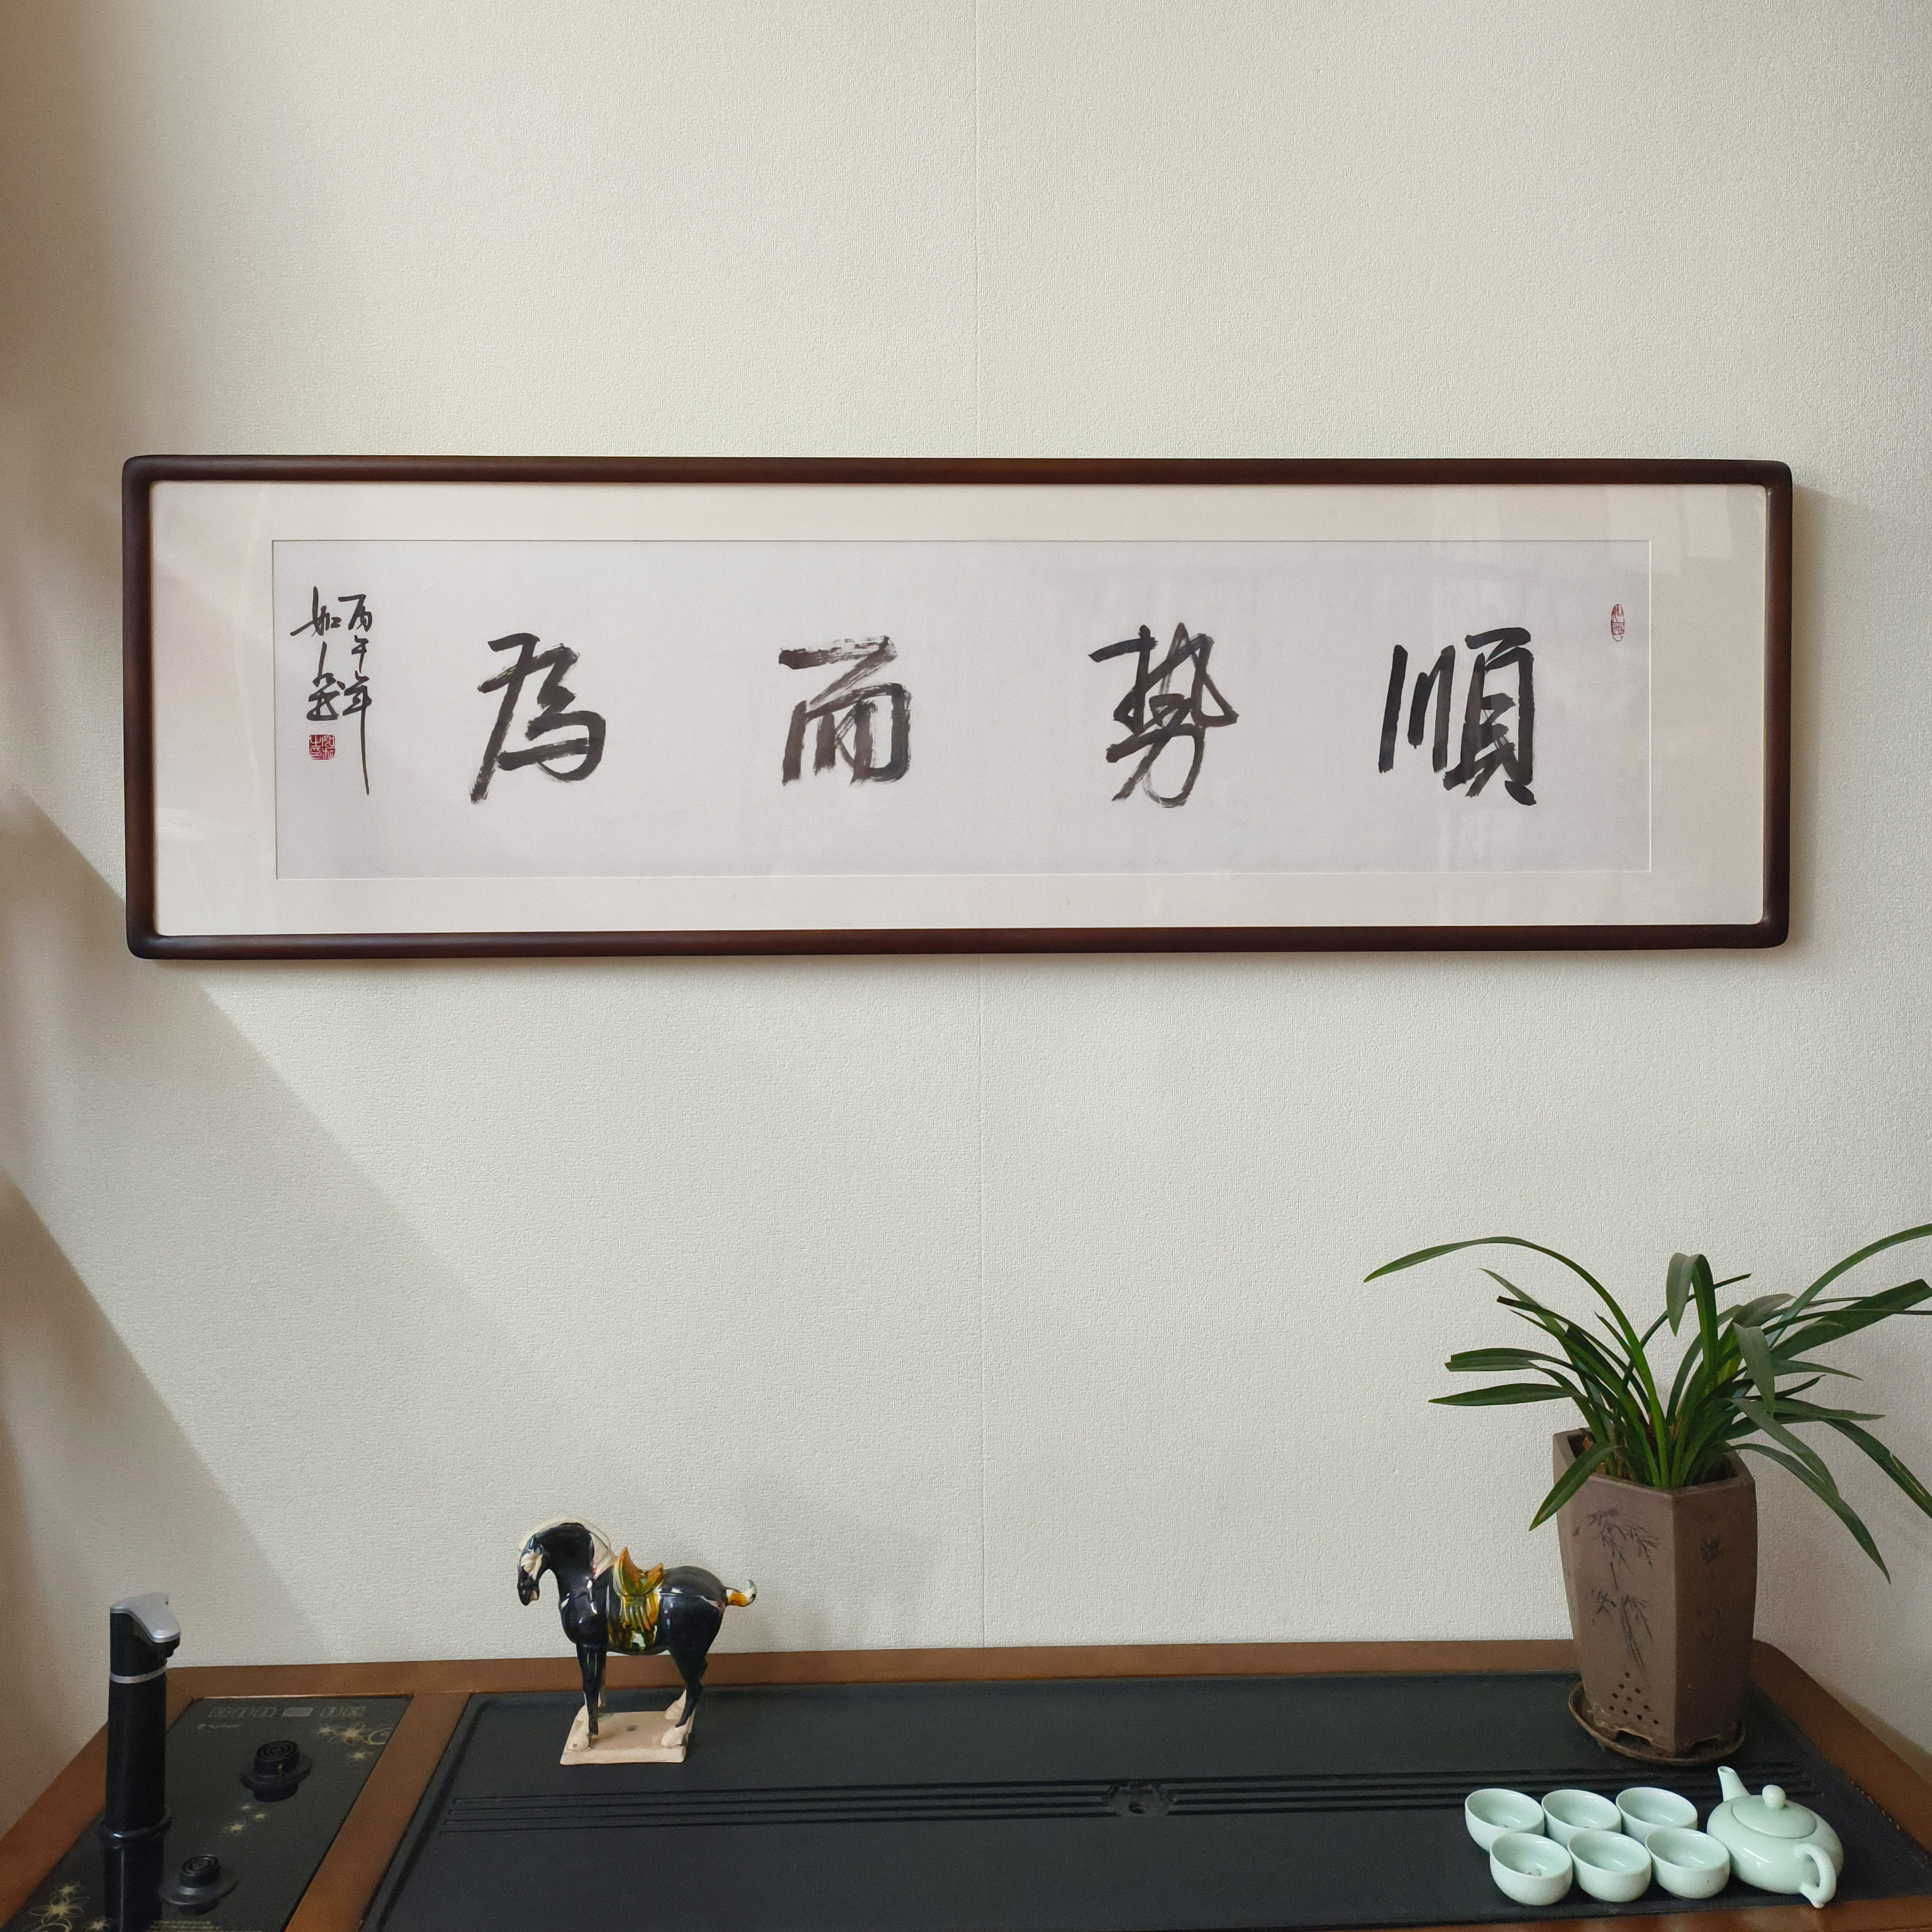 順勢而為
丙午年
如山